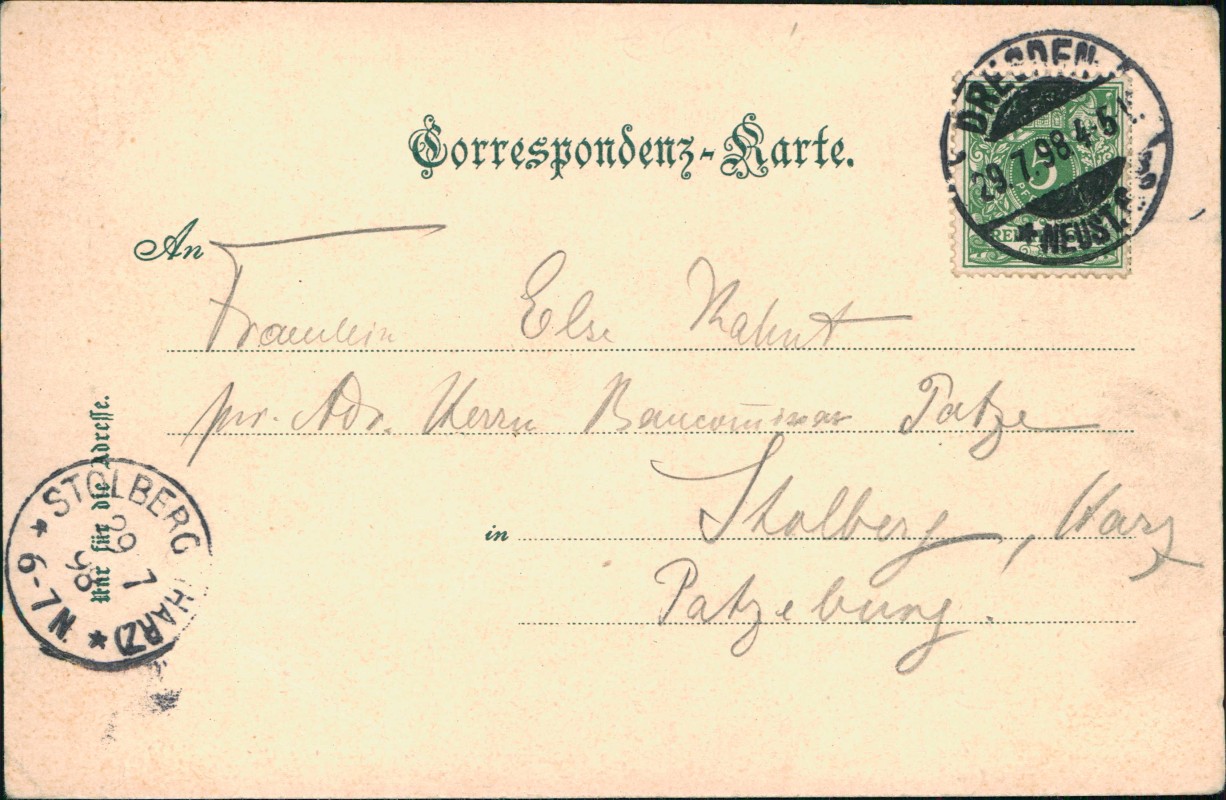 Correspondenz-Karte.
DRESDEN
29.7.98 4-5
NEUST.
5
An
Fräulein Else Kahnt
pr. Adr. Herrn Baucom̅issar Patze
in Stolberg, Harz
Patzeburg.
Nur für die Adresse.
STOLBERG (HARZ)
29 7 98
N 7-9